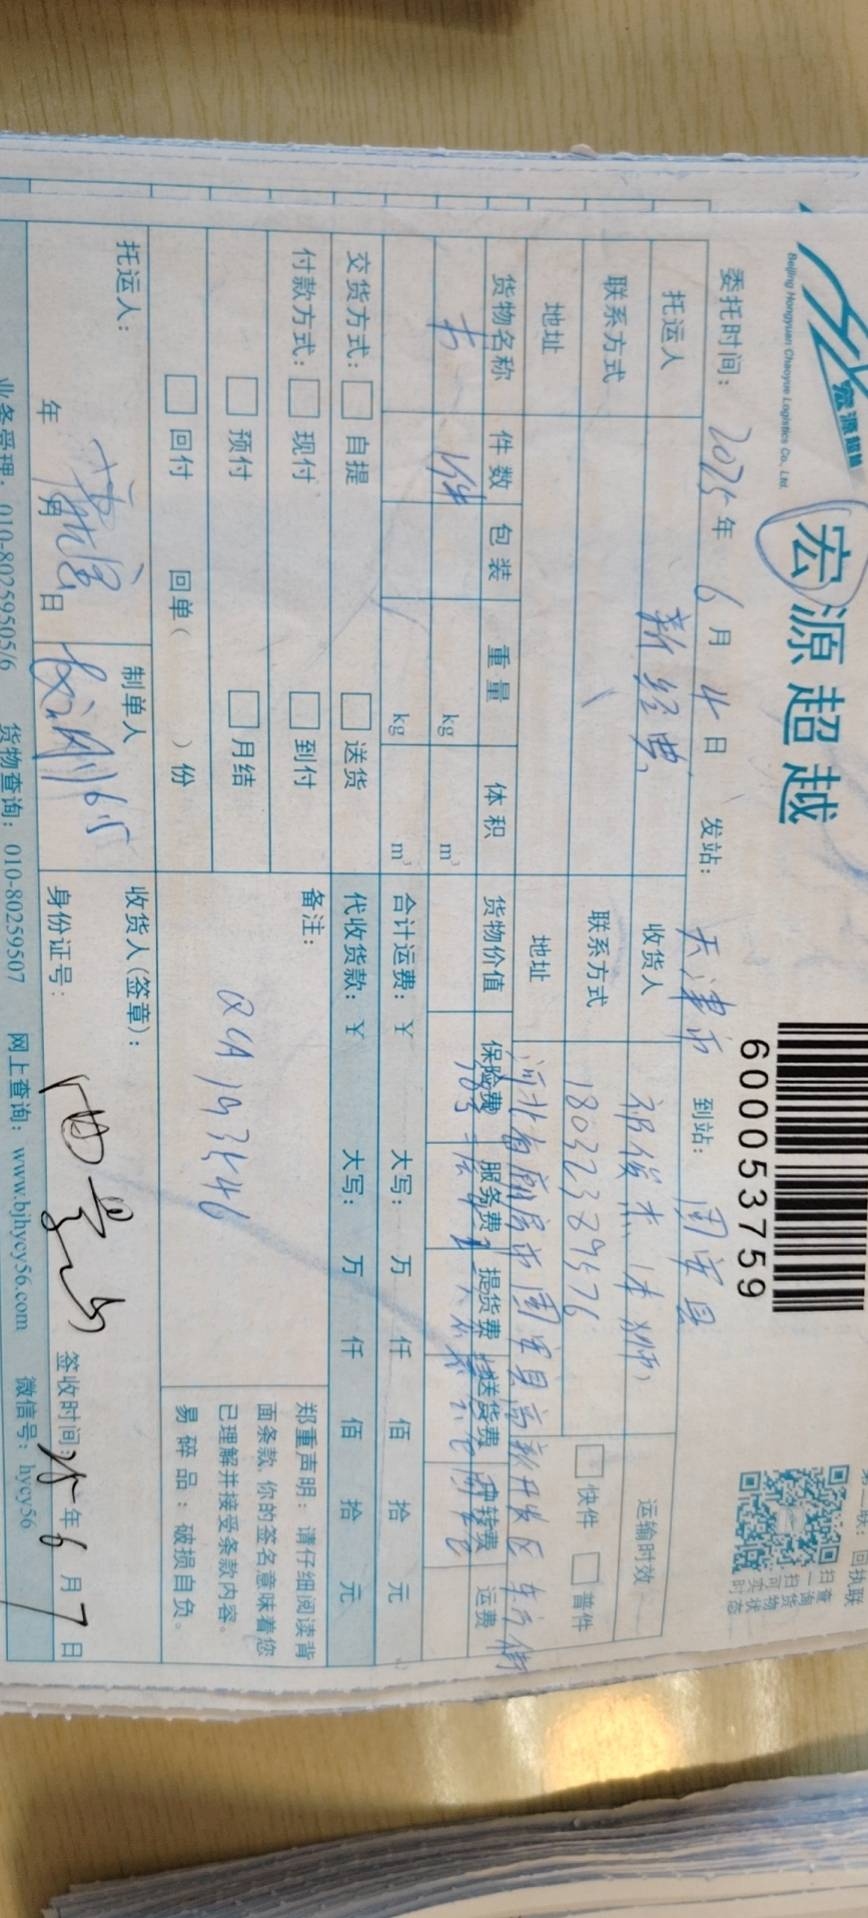 宏源超越
Beijing Hongyuan Chaoyue Logistics Co., Ltd.
宏源超越
6000053759
第二联：回执联
扫查
一询
扫货
可物
实状
时态
委托时间：2025年6月4日 发站：天津市 到站：固安县
托运人 新经典 收货人 运输时效
联系方式 联系方式 18032389576 快件 普件
地址 地址 河北省廊坊市固安县高新开发区
货物名称 件数 包装 重量 体积 货物价值 保险费 服务费 提货费 送货费 中转费 运费
书 kg m³
kg m³ 合计运费：¥ 大写： 万 仟 佰 拾 元
交货方式： 自提 送货 代收货款：¥ 大写： 万 仟 佰 拾 元
付款方式： 现付 到付 备注：
预付 月结
回付 回单（ ）份
郑重声明：请仔细阅读背
面条款，你的签名意味着您
已理解并接受条款内容。
易碎品：破损自负。
托运人： 制单人 收货人(签章)：
年 月 日 6.5 身份证号： 签收时间：25年6月7日
业务受理：010-80259505/6 货物查询：010-80259507 网上查询：www.bjhycy56.com 微信号：hycy56